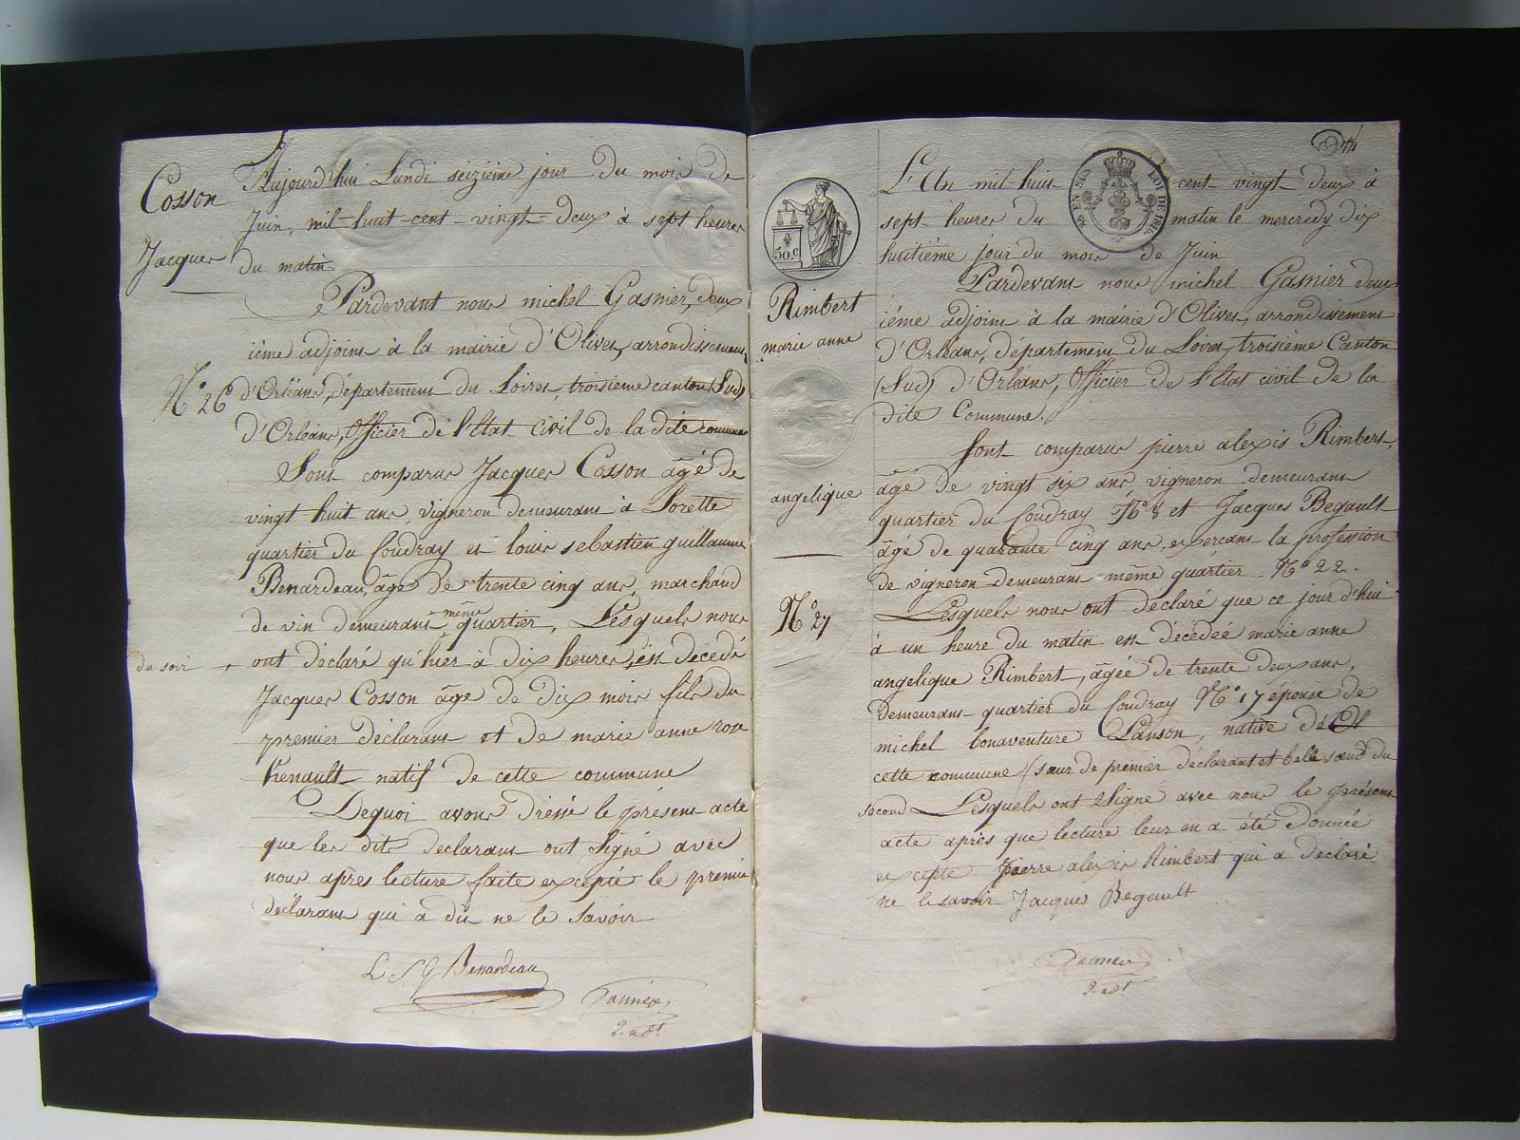 Cosson
Jacques
N° 26
du soir
Aujourd'hui Lundi seizième jour du mois de
Juin, mil-huit-cent-vingt-deux à sept heures
du matin
Pardevant nous michel Gasnier, deux
ième adjoint à la mairie d'Olivet, arrondissement
d'Orléans, département du Loiret, troisième canton (Sud)
d'Orléans, Officier de l'Etat civil de la dite commune
Sont comparus Jacques Cosson âgé de
vingt huit ans, vigneron demeurant à Lorette
quartier du Coudray et louis sebastien guillaume
Benardeau, âgé de trente cinq ans, marchand
de vin demeurant même quartier, Lesquels nous
ont déclaré qu'hier à dix heures, est décédé
Jacques Cosson âgé de dix mois fils du
premier déclarant et de marie anne rose
Renault natif de cette commune
Dequoi avons dressé le présent acte
que les dits déclarans ont Signé avec
nous après lecture faite excepté le premier
déclarant qui a dit ne le Savoir
L S G Benardeau
Gasnier
2. adt
Rimbert
marie anne
angelique
N° 27
50 c
L'An mil huit cent vingt-deux à
sept heures du matin le mercredy dix
huitième jour du mois de Juin
Pardevant nous michel Gasnier deux
ième adjoint à la mairie d'Olivet, arrondissement
d'Orléans, département du Loiret, troisième Canton
(Sud) d'Orléans, Officier de l'Etat civil de la
dite Commune.
Sont comparus pierre alexis Rimbert,
âgé de vingt six ans vigneron demeurant
quartier du Coudray N° 8 et Jacques Begault
âgé de quarante cinq ans, exerçant la profession
de vigneron demeurant même quartier N° 22.
Lesquels nous ont déclaré que ce jour d'hui
à un heure du matin est décédée marie anne
angelique Rimbert, âgée de trente deux ans,
demeurant quartier du Coudray N° 17 épouse de
michel bonaventure Panson, native de
cette commune (sœur de premier déclarant et belle sœur du
second Lesquels ont Signé avec nous le présent
acte après que lecture leur en a été donnée
excepté pierre alexis Rimbert qui a déclaré
ne le savoir Jacques Begault
Gasnier
2. adt